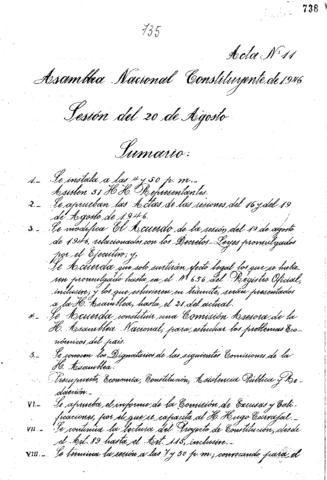 738 V
735
Acta Nº 11
Asamblea Nacional Constituyente de 1946
Sesión del 20 de Agosto
Sumario:
1_ Se instala a las 4 y 50 p. m._
Asisten 51 H H. Representantes.
2_ Se aprueban las Actas de las sesiones del 16 y del 19
de Agosto de 1946.
3_ Se modifica El Acuerdo de la sesión del 19 de agosto
de 1946, relacionados con los Decretos-Leyes promulgados
por el Ejecutivo; y,
Se Acuerda que solo surtirán efecto legal los que se hubie
ren promulgado hasta en el Nº 636 del Registro Oficial,
inclusive; y los que estuvieren en trámite, serán presentados
a la H. Asamblea, hasta el 21 del actual.
4_ Se Acuerda constituir una Comisión Asesora de la
H. Asamblea Nacional, para estudiar los problemas Eco-
nómicos del país.
5_ Se nombran los Dignatarios de las siguientes Comisiones de la
H. Asamblea:
Presupuesto, Economía, Constitución, Asistencia Pública y Re-
dacción._
VI_ Se aprueba el informe de la Comisión de Excusas y Cali-
ficaciones, por el que se capacita al H. Hugo Carvajal._
VII_ Se continúa la lectura del Proyecto de Constitución, desde
el Art. 89 hasta el Art. 115, inclusive._
VIII_ Se termina la sesión a las 7 y 50 p. m., convocando para el